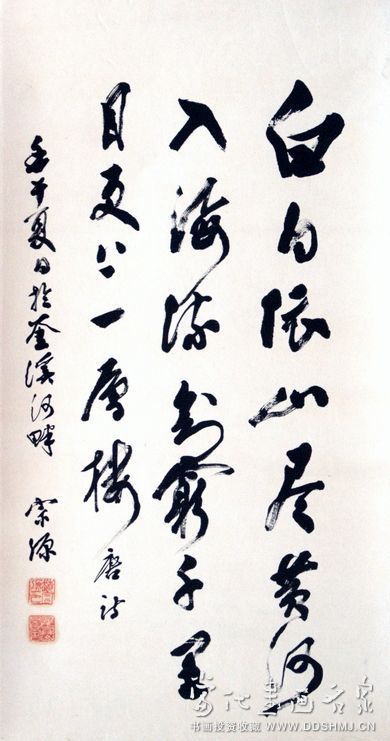 白日依山尽黄河
入海流欲窮千里
目更上一層樓 唐诗
壬午夏日於釜溪河畔 宗源
当代书画名家
书画投资收藏 WWW.DDSHMJ.CN